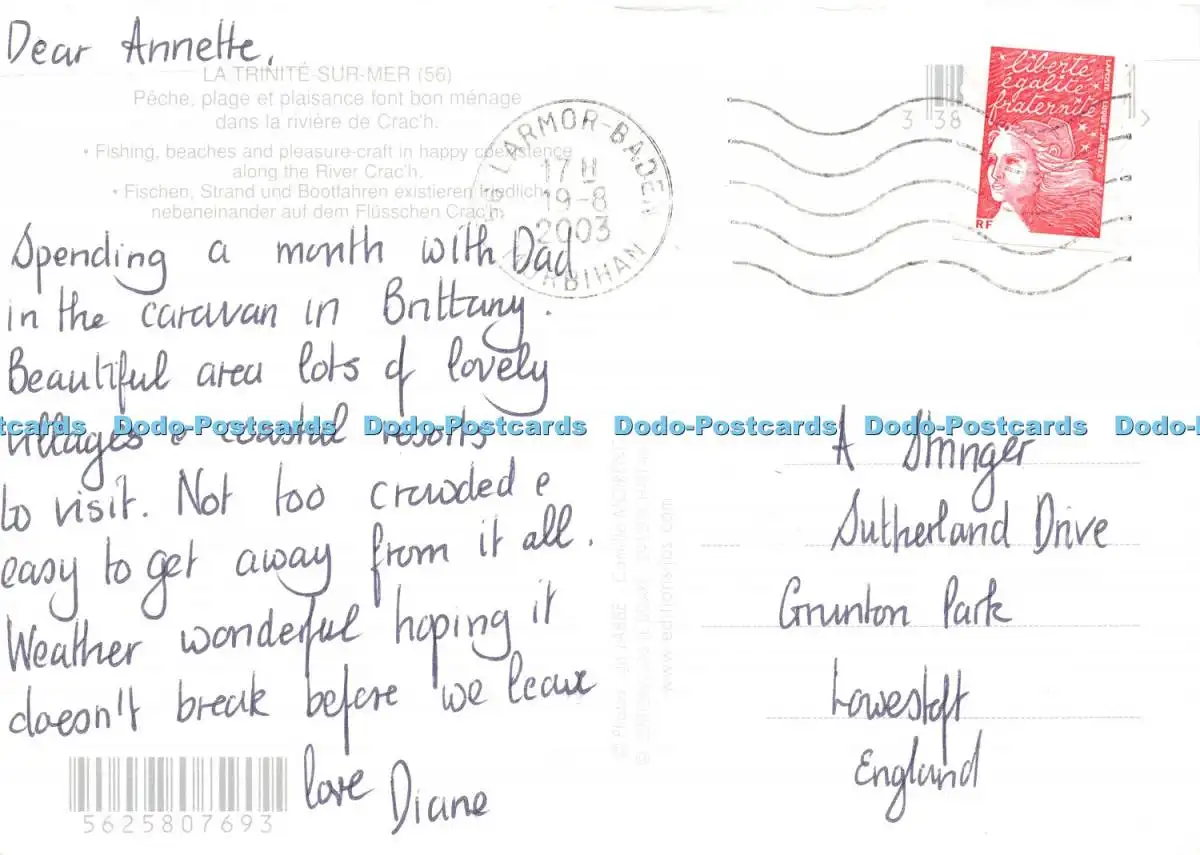 Dear Annette,
LA TRINITÉ-SUR-MER (56)
Pêche, plage et plaisance font bon ménage
dans la rivière de Crac'h.
• Fishing, beaches and pleasure-craft in happy coexistence
along the River Crac'h.
• Fischen, Strand und Bootfahren existieren friedlich
nebeneinander auf dem Flüsschen Crac'h.
Spending a month with Dad
in the caravan in Brittany.
Beautiful area lots of lovely
villages & coastal resorts
to visit. Not too crowded &
easy to get away from it all.
Weather wonderful hoping it
doesn't break before we leave
love Diane
5625807693
LARMOR-BADEN
17 H
19-8
2003
MORBIHAN
3 38
liberté
égalité
fraternité
RF
LA POSTE
A Stringer
Sutherland Drive
Grunton Park
Lowestoft
England
www.editions-jos.com
Dodo-Postcards Dodo-Postcards Dodo-Postcards Dodo-Postcards